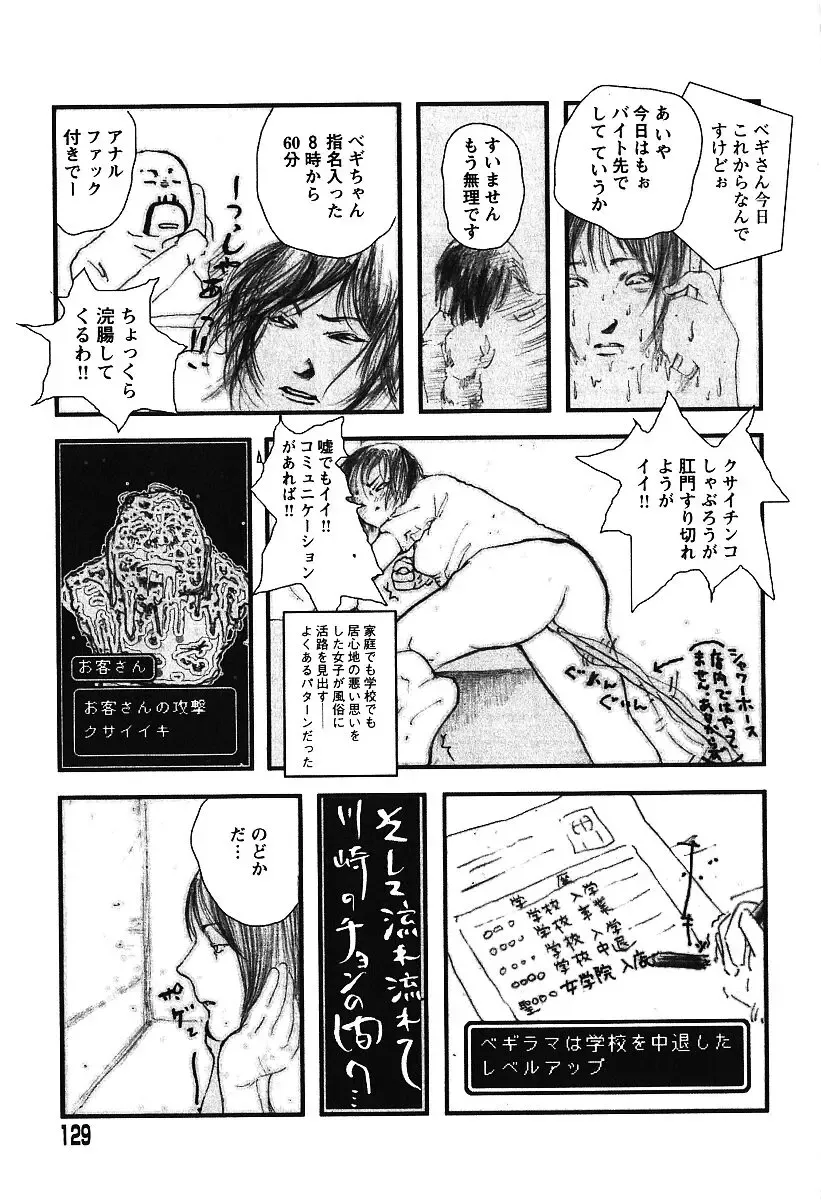 ベギさん今日
これからなんで
すけどぉ
あいや
今日はもぉ
バイト先で
してていうか
すいません
もう無理です
ベギちゃん
指名入った
8時から
60分
アナル
ファック
付きでー
ちょっくら
浣腸して
くるわ!!
クサイチンコ
しゃぶろうが
肛門すり切れ
ようが
イイ!!
嘘でもイイ!!
コミュニケーション
があれば!!
家庭でも学校でも
居心地の悪い思いを
した女子が風俗に
活路を見出す――
よくあるパターンだった
シャワーホース
ぐぃんぐぃん
お客さん
お客さんの攻撃
クサイイキ
学歴
○○○学校 入学
○○○学校 卒業
○○○学校 入学
○○○学校 中退
聖○○○女学院 入
ベギラマは学校を中退した
レベルアップ
そして流れ流れて
川崎のチョンの間へ…
のどか
だ…
129